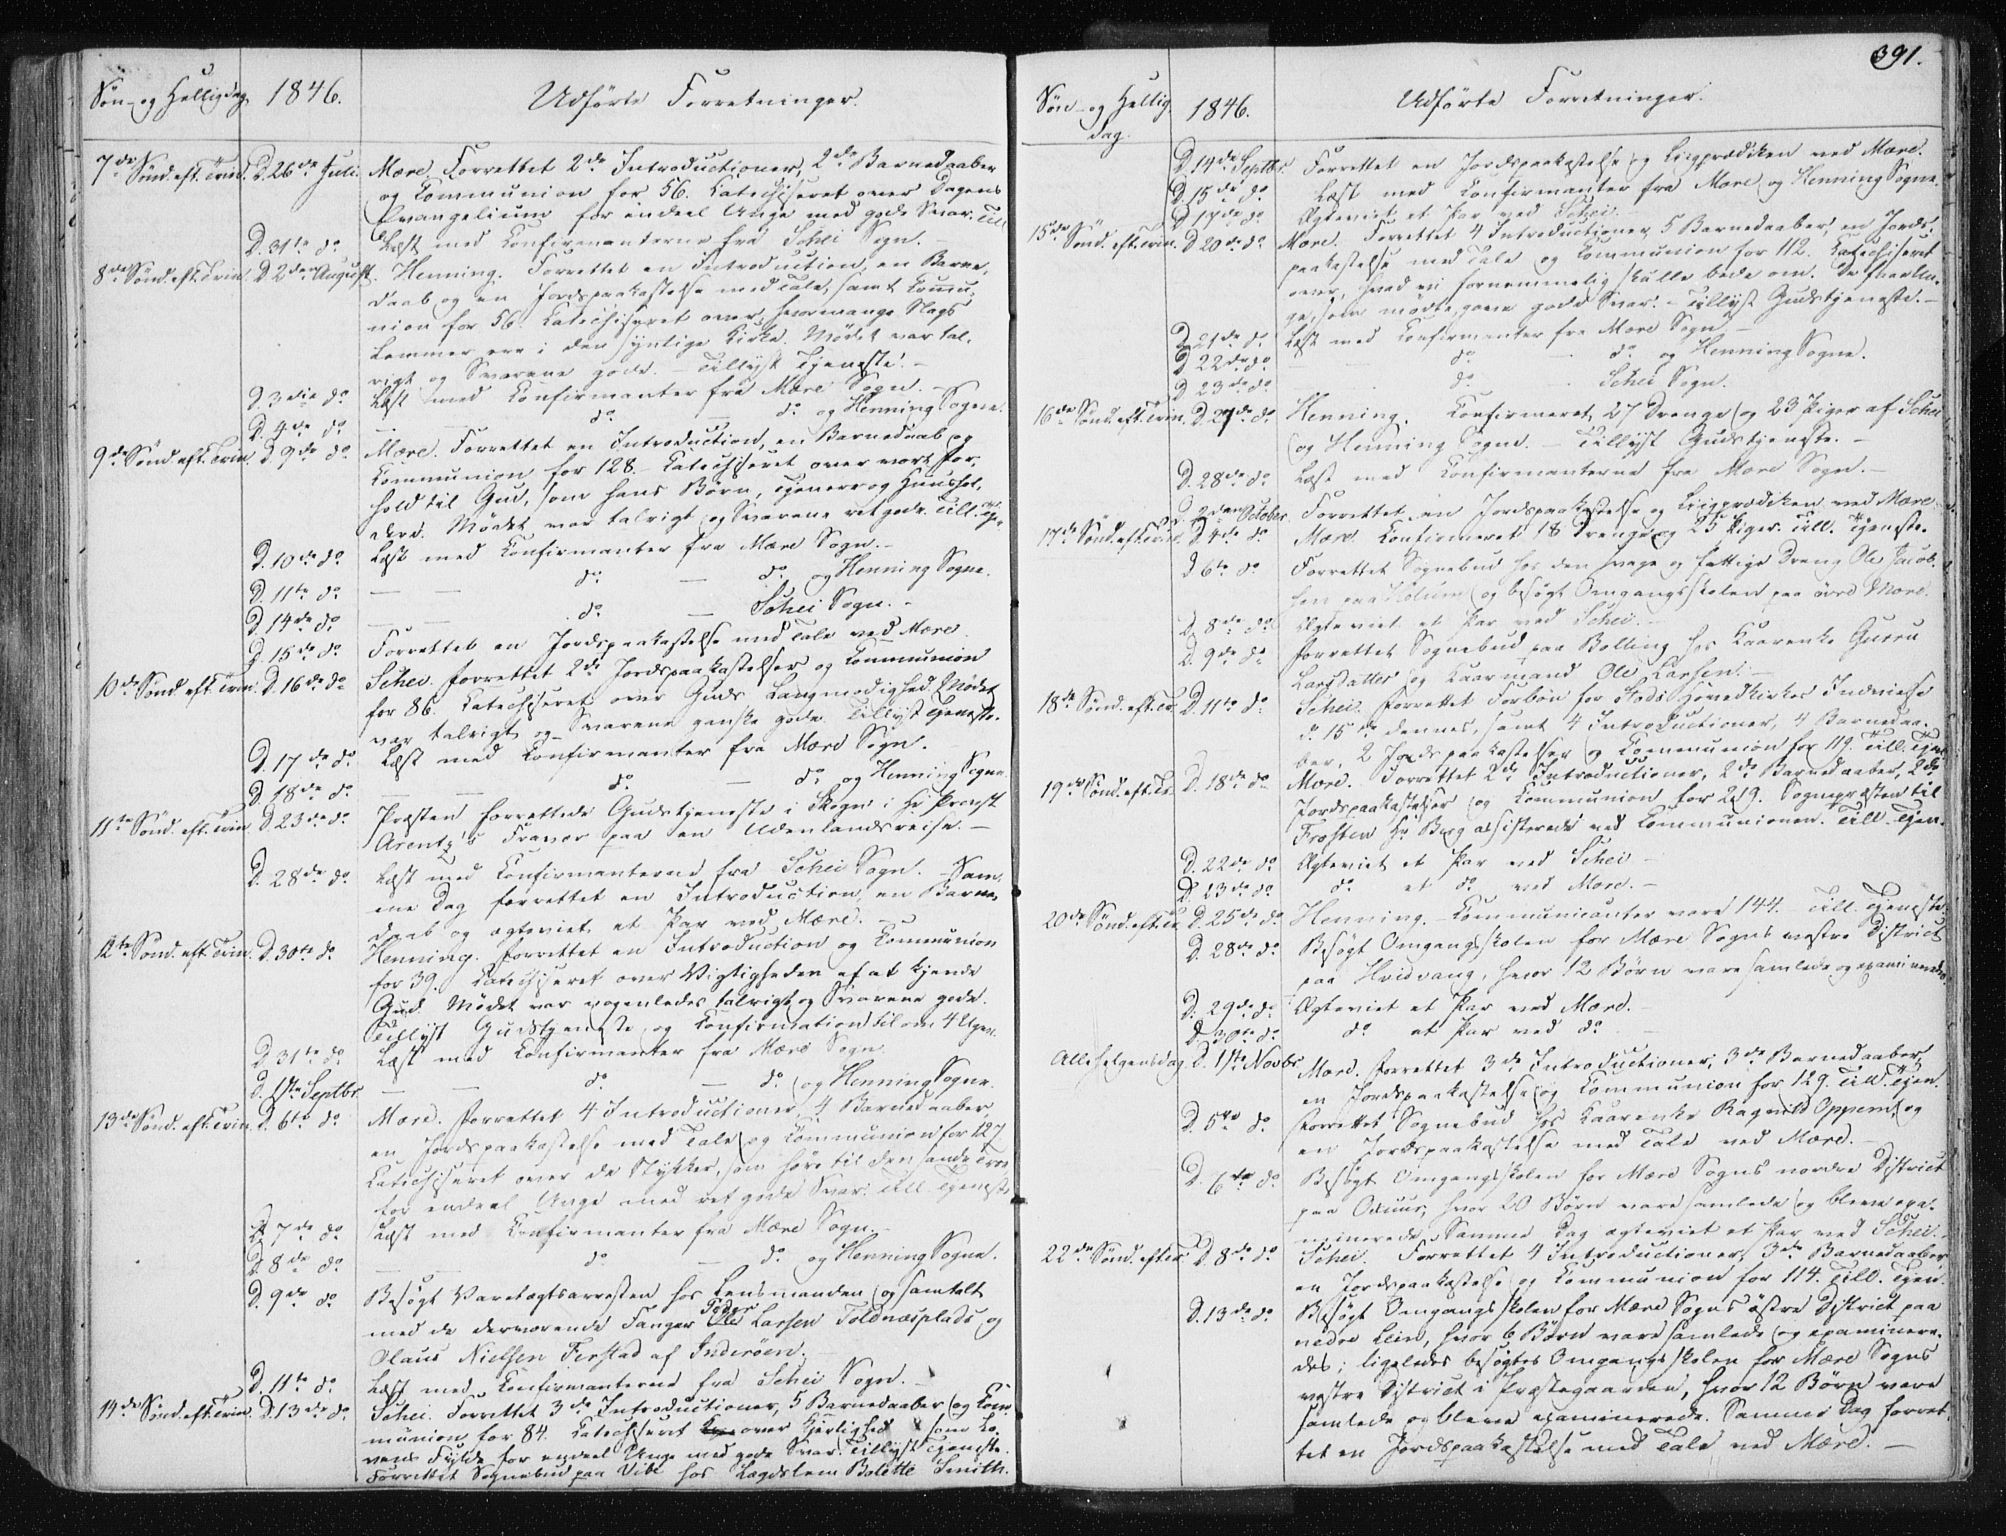 Søn- og Helligdag. 1846. Udførte Forretninger.
7de Sønd. eft. Trin. D. 26de Juli. Mære. Forrettet 2de Introductioner, 2de Barnedaaber
og Communion for 56. Catechiseret over Dagens
Evangelium for endeel Unge med gode Svar. Till
D. 31te do Læst med Confirmanterne fra Schei Sogn. –
8de Sønd. eft. Trin. D 2den August. Henning. Forrettet en Introduction, en Barne-
daab og en Jordspaakastelse med Tale, samt Commu-
nion for 56. Catechiseret over, hvormange Slags
Lemmer ere i den synlige Kirke. Mødet var tal-
rigt og Svarene gode. – Tillyst Tjeneste. –
D 3die do Læst med Confirmanter fra Mære Sogn. –
D. 4de do – – do – do og Henning Sogne.
9de Sønd. eft. Trin. D. 9de do Mære. Forrettet en Introduction, en Barnedaab og
Communion for 128. – Catechiseret over vort For-
hold til Gud, som hans Børn, Tjenere og Huushol-
dere. Mødet var talrigt og Svarene ret gode. Till. Tje-
D. 10de do Læst med Confirmanter fra Mære Sogn. –
D. 11te do – – do – do og Henning Sogne.
D. 14de do – – do – Schei Sogn. –
D. 15de do Forrettet en Jordspaakastelse med Tale ved Mære.
10de Sønd. eft. Trin. D. 16de do Schei. Forrettet 2de Jordspaakastelser og Communion
for 86. Catechiseret over Guds Langmodighed. Mødet
var talrigt og Svarene ganske gode. Tillyst Tjeneste.
D. 17de do Læst med Confirmanter fra Mære Sogn.
D. 18de do – – do – do og Henning Sogne.
11te Sønd. eft. Trin. D 23de do Præsten forrettede Gudstjeneste i Skogn i Hr Provst
Arentz's Fravær paa en Udenlandsreise. –
D. 28de do Læst med Confirmanterne fra Schei Sogn. – Sam-
me Dag forrettet en Introduction, en Barne-
daab og ægteviet et Par ved Mære. –
12te Sønd. eft. Trin. D. 30te do Henning. Forrettet en Introduction og Communion
for 39. Catechiseret over Vigtigheden af at kjende
Gud. Mødet var nogenledes talrigt og Svarene gode.
Tillyst Gudstjeneste og Confirmation til om 4 Uger.
D. 31te do Læst med Confirmanter fra Mære Sogn.
D. 1ste Septbr. – – do – do og Henning Sogne.
13de Sønd. eft. Trin. D. 6te do Mære. Forrettet 4 Introductioner, 4 Barnedaaber,
en Jordspaakastelse med Tale og Communion for 127.
Catechiseret over de Stykker, som høre til den sande Troe
for endeel Unge med ret gode Svar. Till. Tjeneste
D. 7de do Læst med Confirmanter fra Mære Sogn. –
D. 8de do – – do – do og Henning Sogne.
D. 9de do Besøgt Varetægtsarresten hos Lensmanden og samtalt
med de derværende Fanger Peder Larsen Toldnæsplads og
Olaus Nielsen Ferstad af Inderøen. –
D. 11te do Læst med Confirmanterne fra Schei Sogn. –
14de Sønd. eft. Trin. D. 13de do Schei. Forrettet 3de Introductioner, 5 Barnedaaber og Com-
munion for 84. Catechiseret over Kjerlighed som Lo-
vens Fylde for endeel Unge med gode Svar. Tillyst Tjeneste.
Forrettet Sognebud paa Vibe hos Lægdslem Bolette Smith.
391.
Søn- og Hellig- 1846. Udførte Forretninger.
dag.
D. 14de Septbr. Forrettet en Jordspaakastelse og Liigprædiken ved Mære.
D. 15de do Læst med Confirmanter fra Mære og Henning Sogne.
D 17de do Ægteviet et Par ved Schei. –
15de Sønd. eft. Trin. D 20de do Mære. Forrettet 4 Introductioner, 5 Barnedaaber, en Jords-
paakastelse med Tale og Communion for 112. Catechiseret
over, hvad vi fornemmelig skulle bede om. De faae Un-
ge, som mødte, gave gode Svar. – Tillyst Gudstjeneste. –
D 21de do Læst med Confirmanter fra Mære Sogn –
D 22de do – do – do og Henning Sogne.
D 23de do – do – Schei Sogn.
16de Sønd. eft. Trin. D. 27de do Henning. Confirmeret 27 Drenge og 23 Piger af Schei
og Henning Sogne. – Tillyst Gudstjeneste. –
D. 28de do Læst med Confirmanterne fra Mære Sogn. –
D. 2den October. Forrettet en Jordspaakastelse og Liigprædiken ved Mære.
17de Sønd. eft. Trin. D 4de do Mære Confirmeret 18 Drenge og 25 Piger. Till. Tjeneste.
D 6te do Forrettet Sognebud hos den svage og fattige Dreng Ole Jacob-
sen paa og besøgt Omgangsskolen paa øvre Mære.
D. 8de do Ægteviet et Par ved Schei. –
D. 9de do Forrettet Sognebud paa Bolling hos Kaarenke Gurru
Larsdatter og Kaarmand Ole Larsen. –
18de Sønd. eft. Tr. D. 11te do Schei. Forrettet Forbøn for Stods Hovedkirkes Indvielse
d. 15de dennes, samt 4 Introductioner, 4 Barnedaa-
ber, 2 Jordspaakastelser og Communion for 119. Till. Tjen.
19de Sønd. eft. Tr. D. 18de do Mære. Forrettet 2de Introductioner, 2de Barnedaaber, 2de
Jordspaakastelser og Communion for 219. Sognepræsten til
Frosten Hr Berg assisterede ved Communionen. Till. Tjen.
D. 22de do Ægteviet et Par ved Schei –
D. 23de do do et do ved Mære. –
20de Sønd. eft. Tr. D. 25de do Henning. – Communicanter vare 144. Till. Tjeneste.
D. 28de do Besøgt Omgangsskolen for Mære Sogns vestre District
paa Hvidvang, hvor 12 Børn vare samlede og examinerede.
D. 29de do Ægteviet et Par ved Mære. –
D 30te do do et Par ved do –
Allehelgensdag D. 1ste Novbr. Mære. Forrettet 3de Introductioner, 3de Barnedaaber,
en Jordspaakastelse og Communion for 129. Till. Tjen.
D. 5te do Forrettet Sognebud hos Kaarenke Ragnild Oppem og
en Jordspaakastelse med Tale ved Mære. –
D. 6te do Besøgt Omgangsskolen for Mære Sogns nordre District
paa Oxuur, hvor 20 Børn vare samlede og bleve exa-
minerede. Samme Dag ægteviet et Par ved Schei. –
22de Sønd. efter D. 8de do Schei. Forrettet 4 Introductioner, 3de Barnedaaber,
en Jordspaakastelse og Communion for 114. Till. Tjen.
D. 13de do Besøgt Omgangsskolen for Mære Sogns østre District paa
nedre Lein, hvor 6 Børn vare samlede og examinere-
des; ligeledes besøgtes Omgangsskolen for Mære Sogns
vestre District i Præstegaarden, hvor 12 Børn vare
samlede og bleve examinerede. Samme Dag forret-
tet en Jordspaakastelse med Tale ved Mære. –